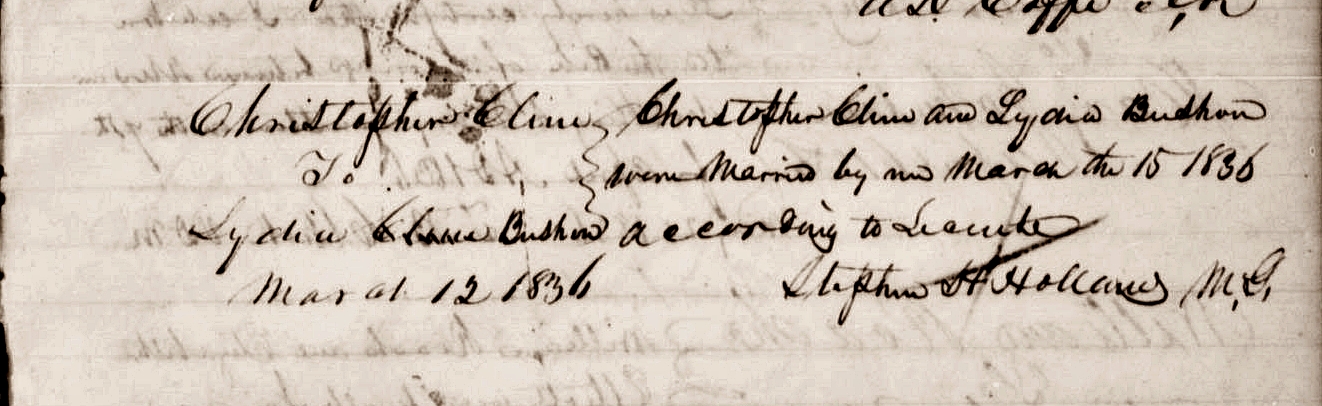 Christopher Cline } Christopher Cline and Lydia Bushon
To } were Married by me March the 15 1836
Lydia Bushon } according to Licence
March 12 1836 Stephen H Holland M.G.